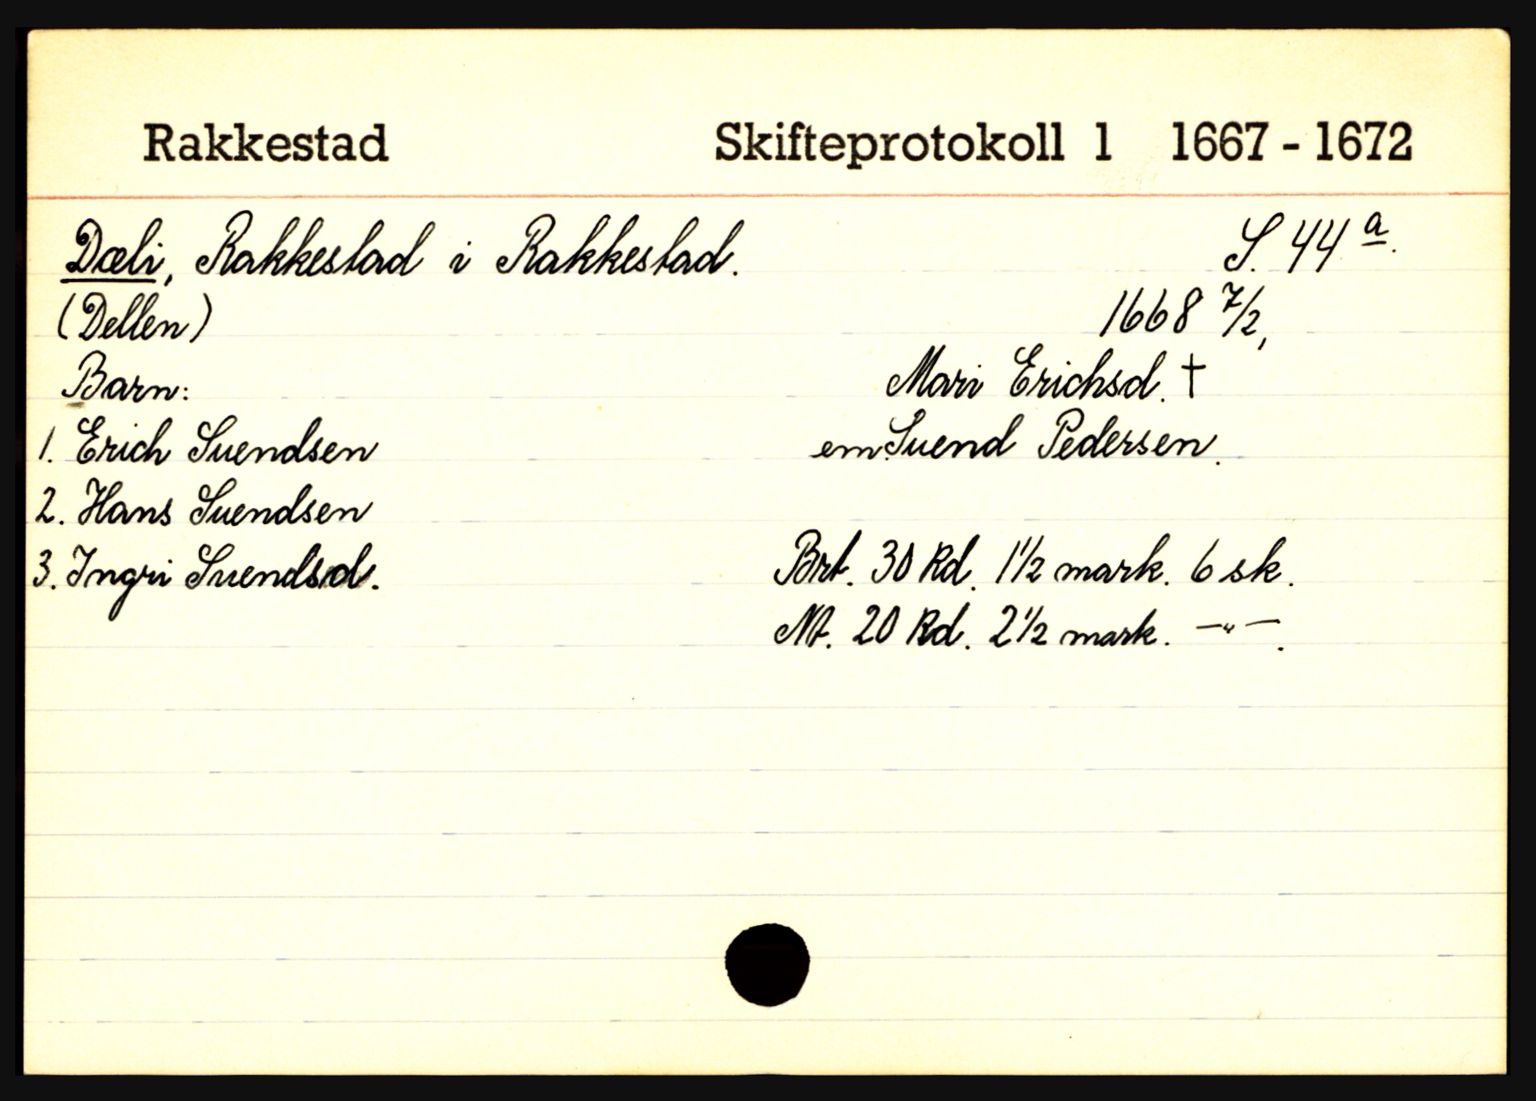 Rakkestad Skifteprotokoll 1 1667 - 1672
Dæli, Rakkestad i Rakkestad. S. 44 a.
(Dellen) 1668 7/2,
Barn: Mari Erichsd. †
1. Erich Suendsen em Suend Pedersen.
2. Hans Suendsen
3. Ingri Suendsd. Brt. 30 Rd. 1 1/2 mark. 6 sk.
Nt. 20 Rd. 2 1/2 mark. —"—.